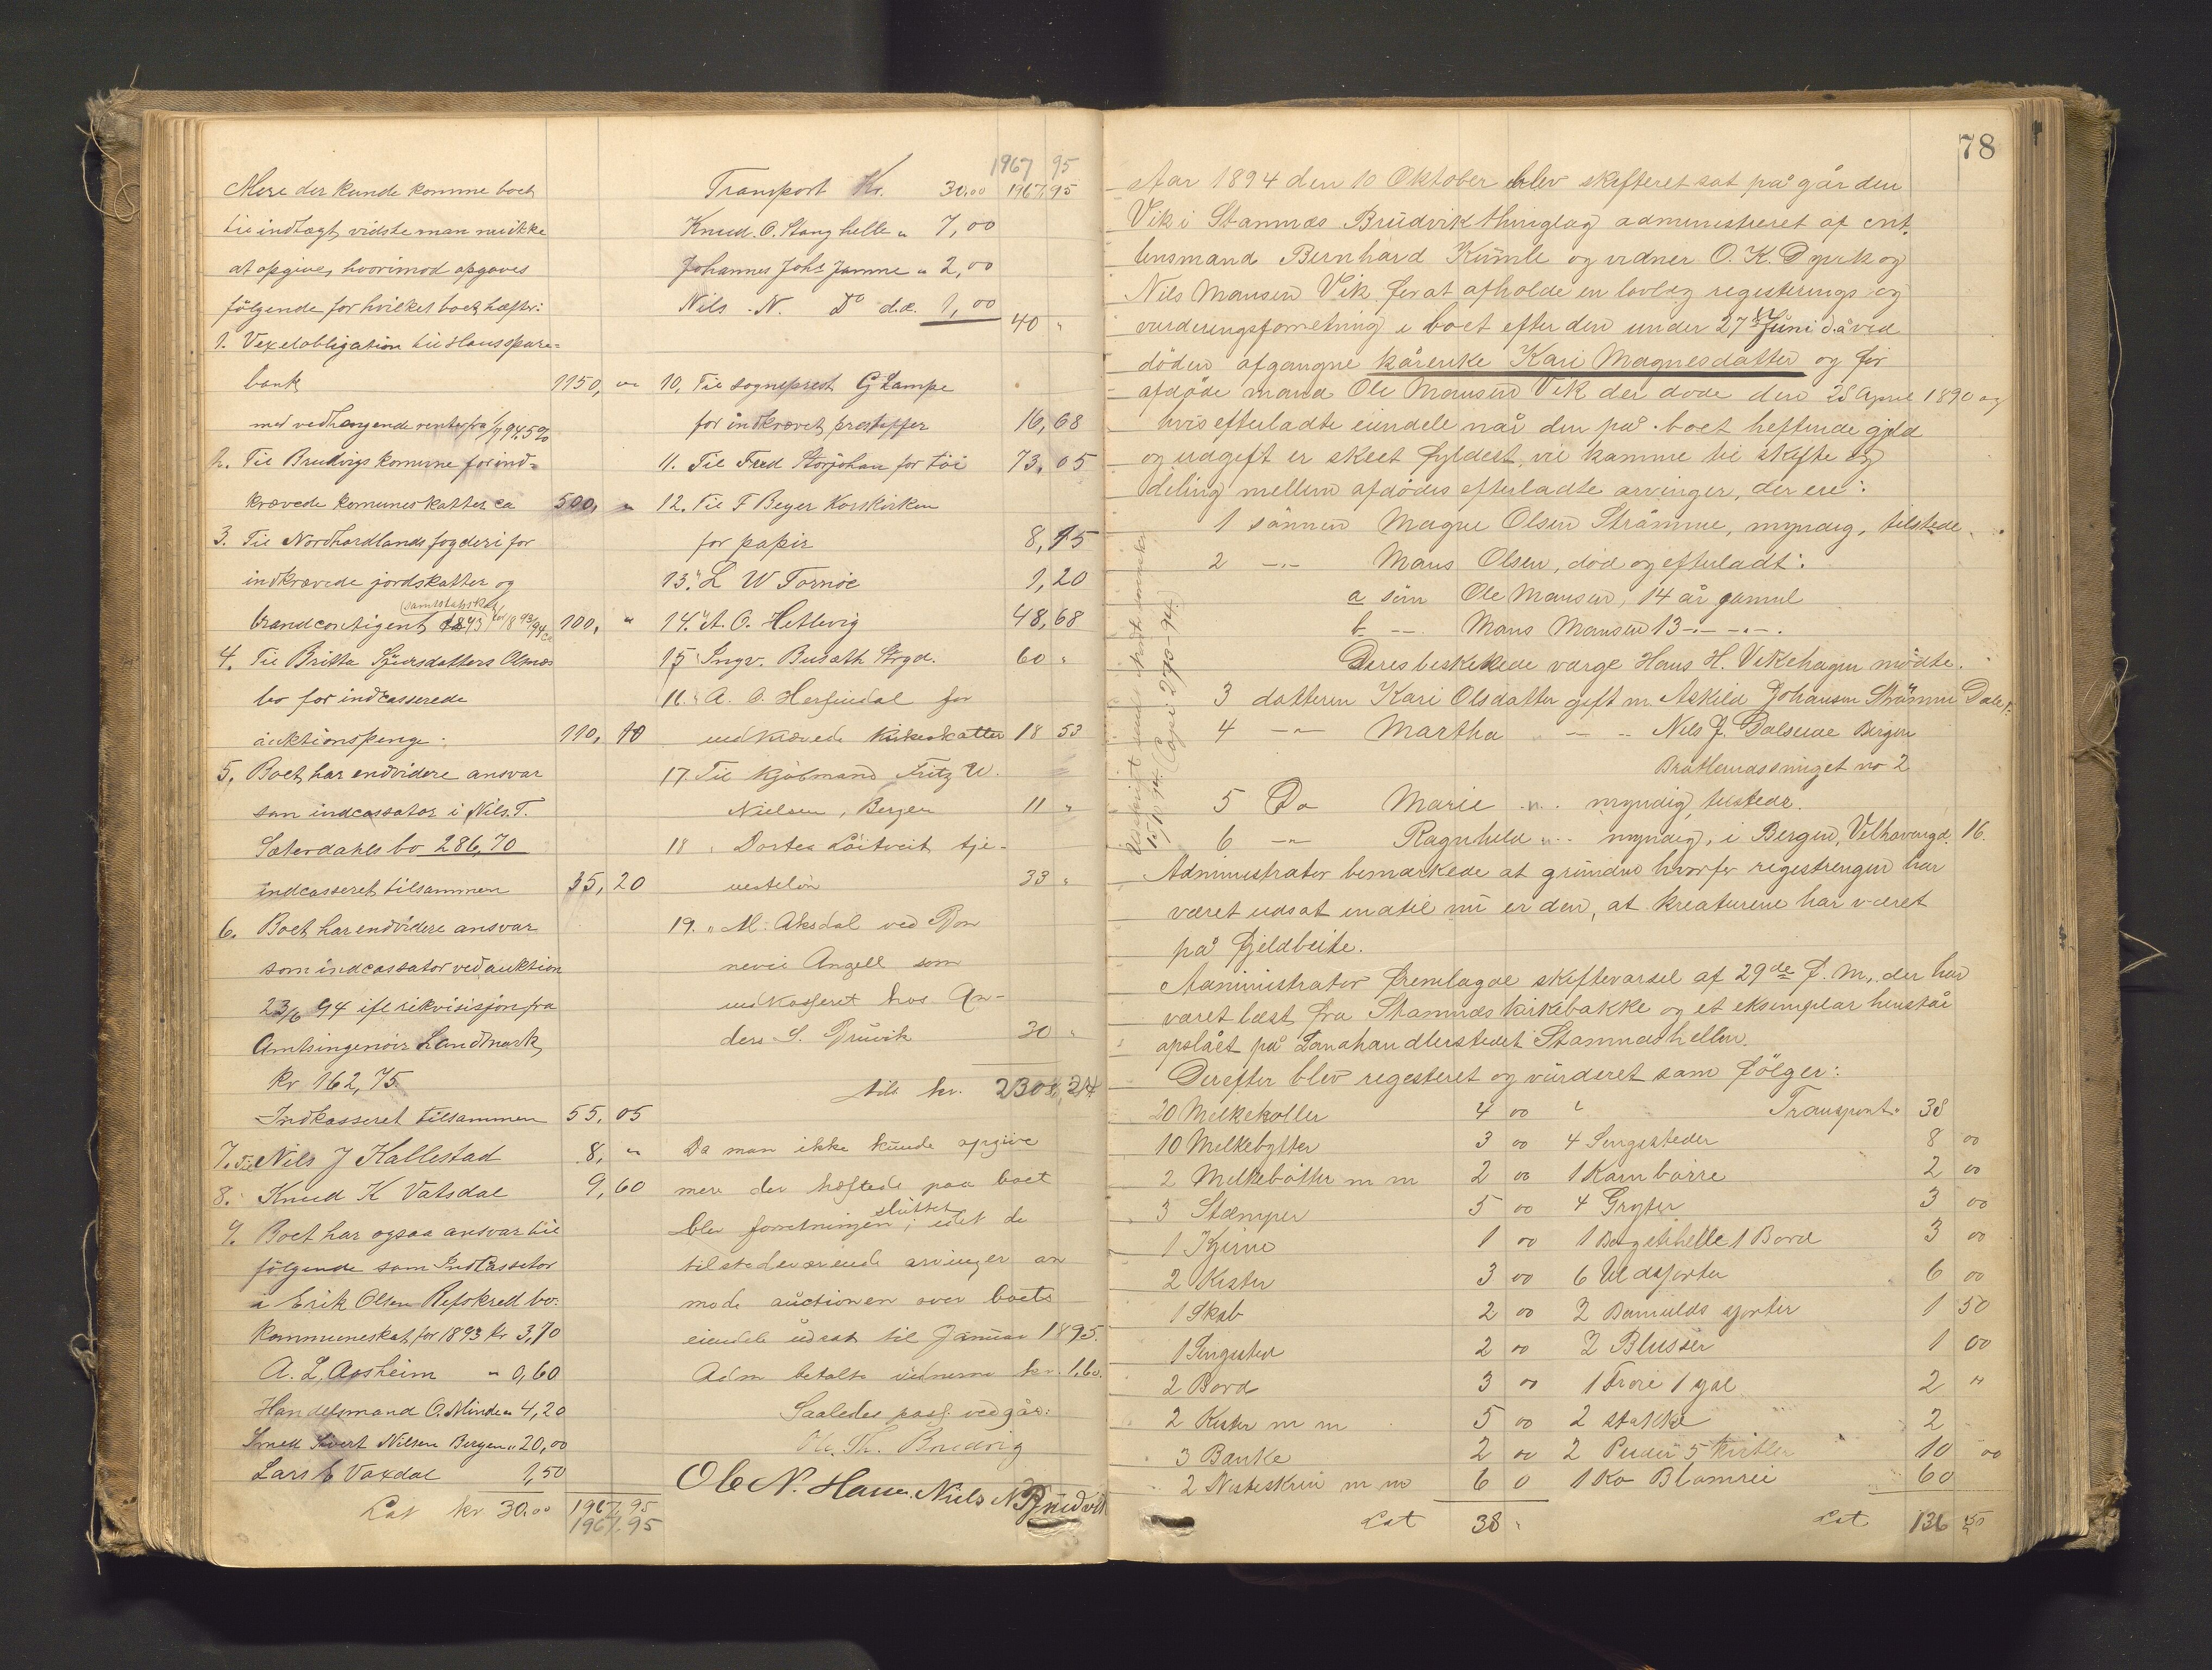 Mere der kunde komme boet
til indtægt, vidste man nu ikke
at opgive, hvorimod opgaves
følgende for hvilket boet hæfter:
1. Vexelobligation til Haus spare=
bank 1150, "
med vedhængende renter fra 1/7 94 5%
2. Til Brudvigs komune for ind=
krævede komuneskatter ca 500, "
3. Til Nordhordlands fogderi for
indkrævede jordskatter og
(samt statsskat)
brandcontigent for 1893/94 ca 100, "
4. Til Britta Sjursdatters Olsnes
bo for indcasserede
auktionspenge. 110, 10
5. Boet har endvidere ansvar
som indcassator i Nils. T.
Sæterdahls bo 286,70
indcasseret tilsammen 35, 20
6. Boet har endvidere ansvar
som indcassator ved auktion
23/6 94 ifl rikvisisjon fra
Amtsingeniør Landmark
kr 162,75
Indkasseret tilsammen 55, 05
7. Til Nils J Kallestad 8, "
8. " Knud K Vatsdal 9, 60
9. Boet har ogsaa ansvar til
følgende som Indkassator
i Erik Olsen Refskrell bo.
Kommuneskat for 1893 kr 3,70
A. L. Aasheim " 0,60
Handelsmand O. Minde " 4,20
Smed Sivert Nilsen Bergen " 20,00
Lars Vaxdal 1,50
Lat kr 30.00 1967,95
1967,95
1967 95
Transport Kr. 30.00 1967,95
Knud. O. Stanghelle " 7,00
Johannes Johs Jamne " 2,00
Nils . N. Do d.æ. 1,00
40 "
10. Til sogneprest G Lampe
for indkrævet prestoffer 16, 68
11. Til Fred Storjohan for töi 73, 05
12. Til F Beyer Korskirken
for papir 8, 15
13. " L W Tornöe 1, 20
14. " A. O. Hetlevig 48, 68
15 Ingv. Budath Strgd. 60 "
16. " A. O. Herfindal for
indkrævede kirkeskatter 18 53
17. Til kjöbmand Fritz W.
Nielsen, Bergen 11 "
18 " Dortea Löitveit tje-
nestelön 33 "
19. " M. Aksdal ved
Angell som
indkasseret hos An-
ders S. Bruvik 30 "
tils. kr. 2308,24
Da man ikke kunde opgive
mere der hæftede paa boet
sluttet
blev forretningen; idet de
tilstedeværende arvinger an
mode auctionen over boets
eiendele udsat til Januar 1895.
Adm betalte vidnerne kr. 1,60.
Saaledes pass. vedgår:
Ol. Th. Brudvig
Ole N. Haus. Niels N Brudvik
78
Aar 1894 den 10 Oktober blev skifteret sat på gården
Vik i Stamnæs Brudvik thinglag administreret af cnt.
lensmand Bernhard Kümle og vidner O. K. Dyvik og
Nils Monsen Vik for at afholde en lovlig registerings og
vurderingsforretning i boet efter den under 27de Juni d.å ved
döden afgangne kårenke Kari Magnesdatter og för
afdöde mand Ole Monsen Vik der döde den 25 April 1890 og
hvis efterladte eiendele når den på boet heftende gjeld
og udgift er skeet fyldest, vil komme til skifte og
deling mellem afdödes efterladte arvinger, der ere:
1 sönnen Magne Olsen Strömme, myndig, tilstede.
2 -"- Mons Olsen, död og efterladt:
a sön Ole Monsen, 14 år gamel
b -- Mons Monsen 13 -"- -"-.
Deres beskikkede værge Hans H. Vikehagen mödte.
3 datteren Kari Olsdatter gift m. Askild Johansen Strömme Dale
4 -"- Martha -- -"- Nils J. Dalseie Bergen
Bratlandssmuget no 2
5 Do Marie -"- myndig, tilstede.
6 -"- Ragnhild -"- myndig, i Bergen, Velhavengd. 16.
Administrator bemærkede at grunden hvorfor registreringen har
været udsat indtil nu er den, at kreaturene har været
på fjeldbeite.
Administrator fremlagde skiftevarsel af 29de f. M., der har
været læst fra Stamnæs kirkebakke og et eksemplar henstår
opslået på Lanahandlerstedet Stamneshellen.
Derefter blev registeret og vurderet som fölger:
20 Melkekoller 4 00
10 Melkebytter 3 00
2 Melkebötter m m 2 00
3 Stamper 5 00
1 Kjerne 1 00
2 Kister 3 00
1 Skab 2 00
1 Sengsted 2 00
2 Bord 3 00
2 Kister m m 5 00
3 Bænke 2 00
2 Nisteskrin m m 6 0
Lat 38 "
Transport. 38
4 Sengsteder 8 00
1 Kornbörre 2 00
4 Gryter 3 00
1 Bagstehelle 1 Bord 3 00
6 Uldsjorter 6 00
2 Bomulds sjorter 1 50
2 Blusser 1 00
1 Tröie 1 2 "
2 stakke 2
2 5 10 00
1 Ko Blomrei 60
Lat 136 50